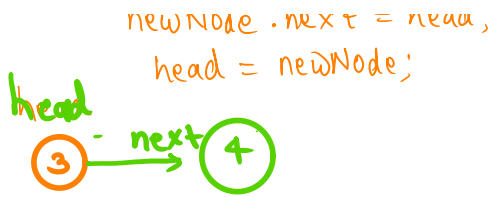 newNode.next = head;
head = newNode;
head
next
3
4